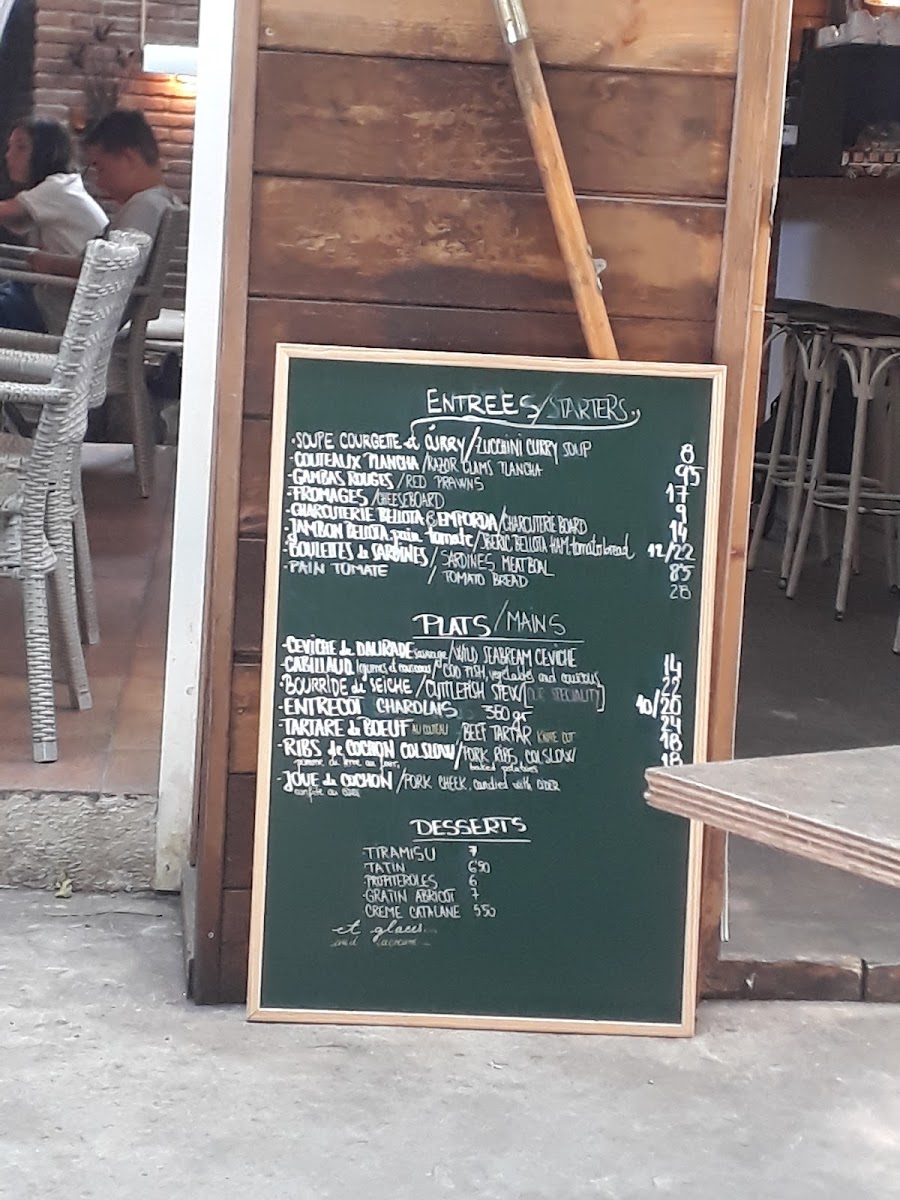 ENTREES/STARTERS
·SOUPE COURGETTE et CURRY/ZUCCHINI CURRY SOUP 8
·COUTEAUX PLANCHA/RAZOR CLAMS PLANCHA 95
·GAMBAS ROUGES/RED PRAWNS 17
·FROMAGES/CHEESEBOARD 9
·CHARCUTERIE BELLOTA & EMPORDA/CHARCUTERIE BOARD 14
·JAMBON BELLOTA.pain tomate/IBERIC BELLOTA HAM-tomato bread 12/22
·BOULETTES de SARDINES/SARDINES MEATBAL 85
·PAIN TOMATE / TOMATO BREAD 28
PLATS/MAINS
·CEVICHE de DAURADE sauvage/WILD SEABREAM CEVICHE 14
·CABILLAUD legumes et couscous/COD FISH, vegetables and couscous 22
·BOURRIDE de SEICHE/CUTTLEFISH STEW/[OUR SPECIALITY] 10/26
·ENTRECOT CHAROLAIS 350 gr 24
·TARTARE de BOEUF AU COUTEAU/BEEF TARTAR KNIFE CUT 18
·RIBS de COCHON COLSLOW/PORK RIBS, COLSLOW 18
pomme de terre au four, baked potatoes
·JOUE de COCHON/PORK CHEEK, candied with CIDER
confite au
DESSERTS
·TIRAMISU 7
·TATIN 650
·PROFITEROLES 6
·GRATIN ABRICOT 7
CREME CATALANE 550
et glaces...
and